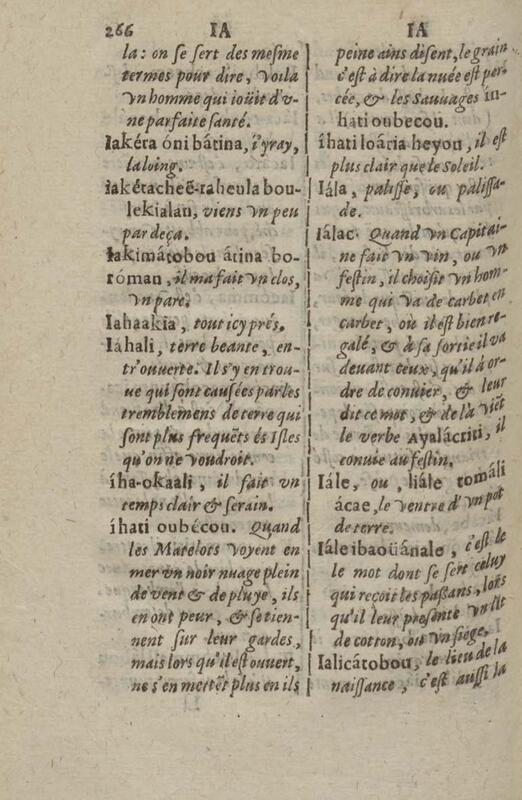 266 IA IA
la: on se sert des mesme
termes pour dire, voilà
vn homme qui ioüit d'v-
ne parfaite santé.
Iakéta óni bátina, i'yray,
la loing.
iakétacheē-taheula bou-
lekialan, viens vn peu
par deça.
Iakimátobou átina bo-
róman, il ma fait vn clos,
vn parc.
Iahaakia, tout icy prés.
Iáhali, terre beante, en-
tr'ouuerte. Ils'y en trou-
ue qui sont causées par les
tremblemens de terre qui
sont plus frequēts és Isles
qu'on ne voudroit.
íha-okaali, il fait vn
temps clair & serain.
íhati oubécou. Quand
les Matelots voyent en
mer vn noir nuage plein
de vent & de pluye, ils
en ont peur, & se tien-
nent sur leur gardes,
mais lors qu'il est ouuert,
ne s'en mettēt plus en ils
peine ains disent, le grain
c'est à dire la nuée est per-
cée, & les Sauuages ín-
hati oubecou.
íhati loária heyou, il est
plus clair que le Soleil.
Iála, palisse, ou palissa-
de.
Iálac. Quand vn Capitai-
ne fait vn vin, ou vn
festin, il choisit vn hom-
me qui va de carbet en
carbet, ou il est bien re-
galé, & à sa sortie il va
deuant ceux, qu'il à or-
dre de conuier, & leur
dit ce mot, & de là viēt
le verbe Ayaláctiti, il
conuie au festin.
Iále, ou, liále tomáli
ácae, le ventre d'vn pot
de terre.
Iále ibaoüánale, c'est le
le mot dont se sert celuy
qui reçoit les passans, lors
qu'il leur presente vn lit
de cotton, ou vn siege,
Ialicátobou, le lieu de la
naissance, c'est aussi la